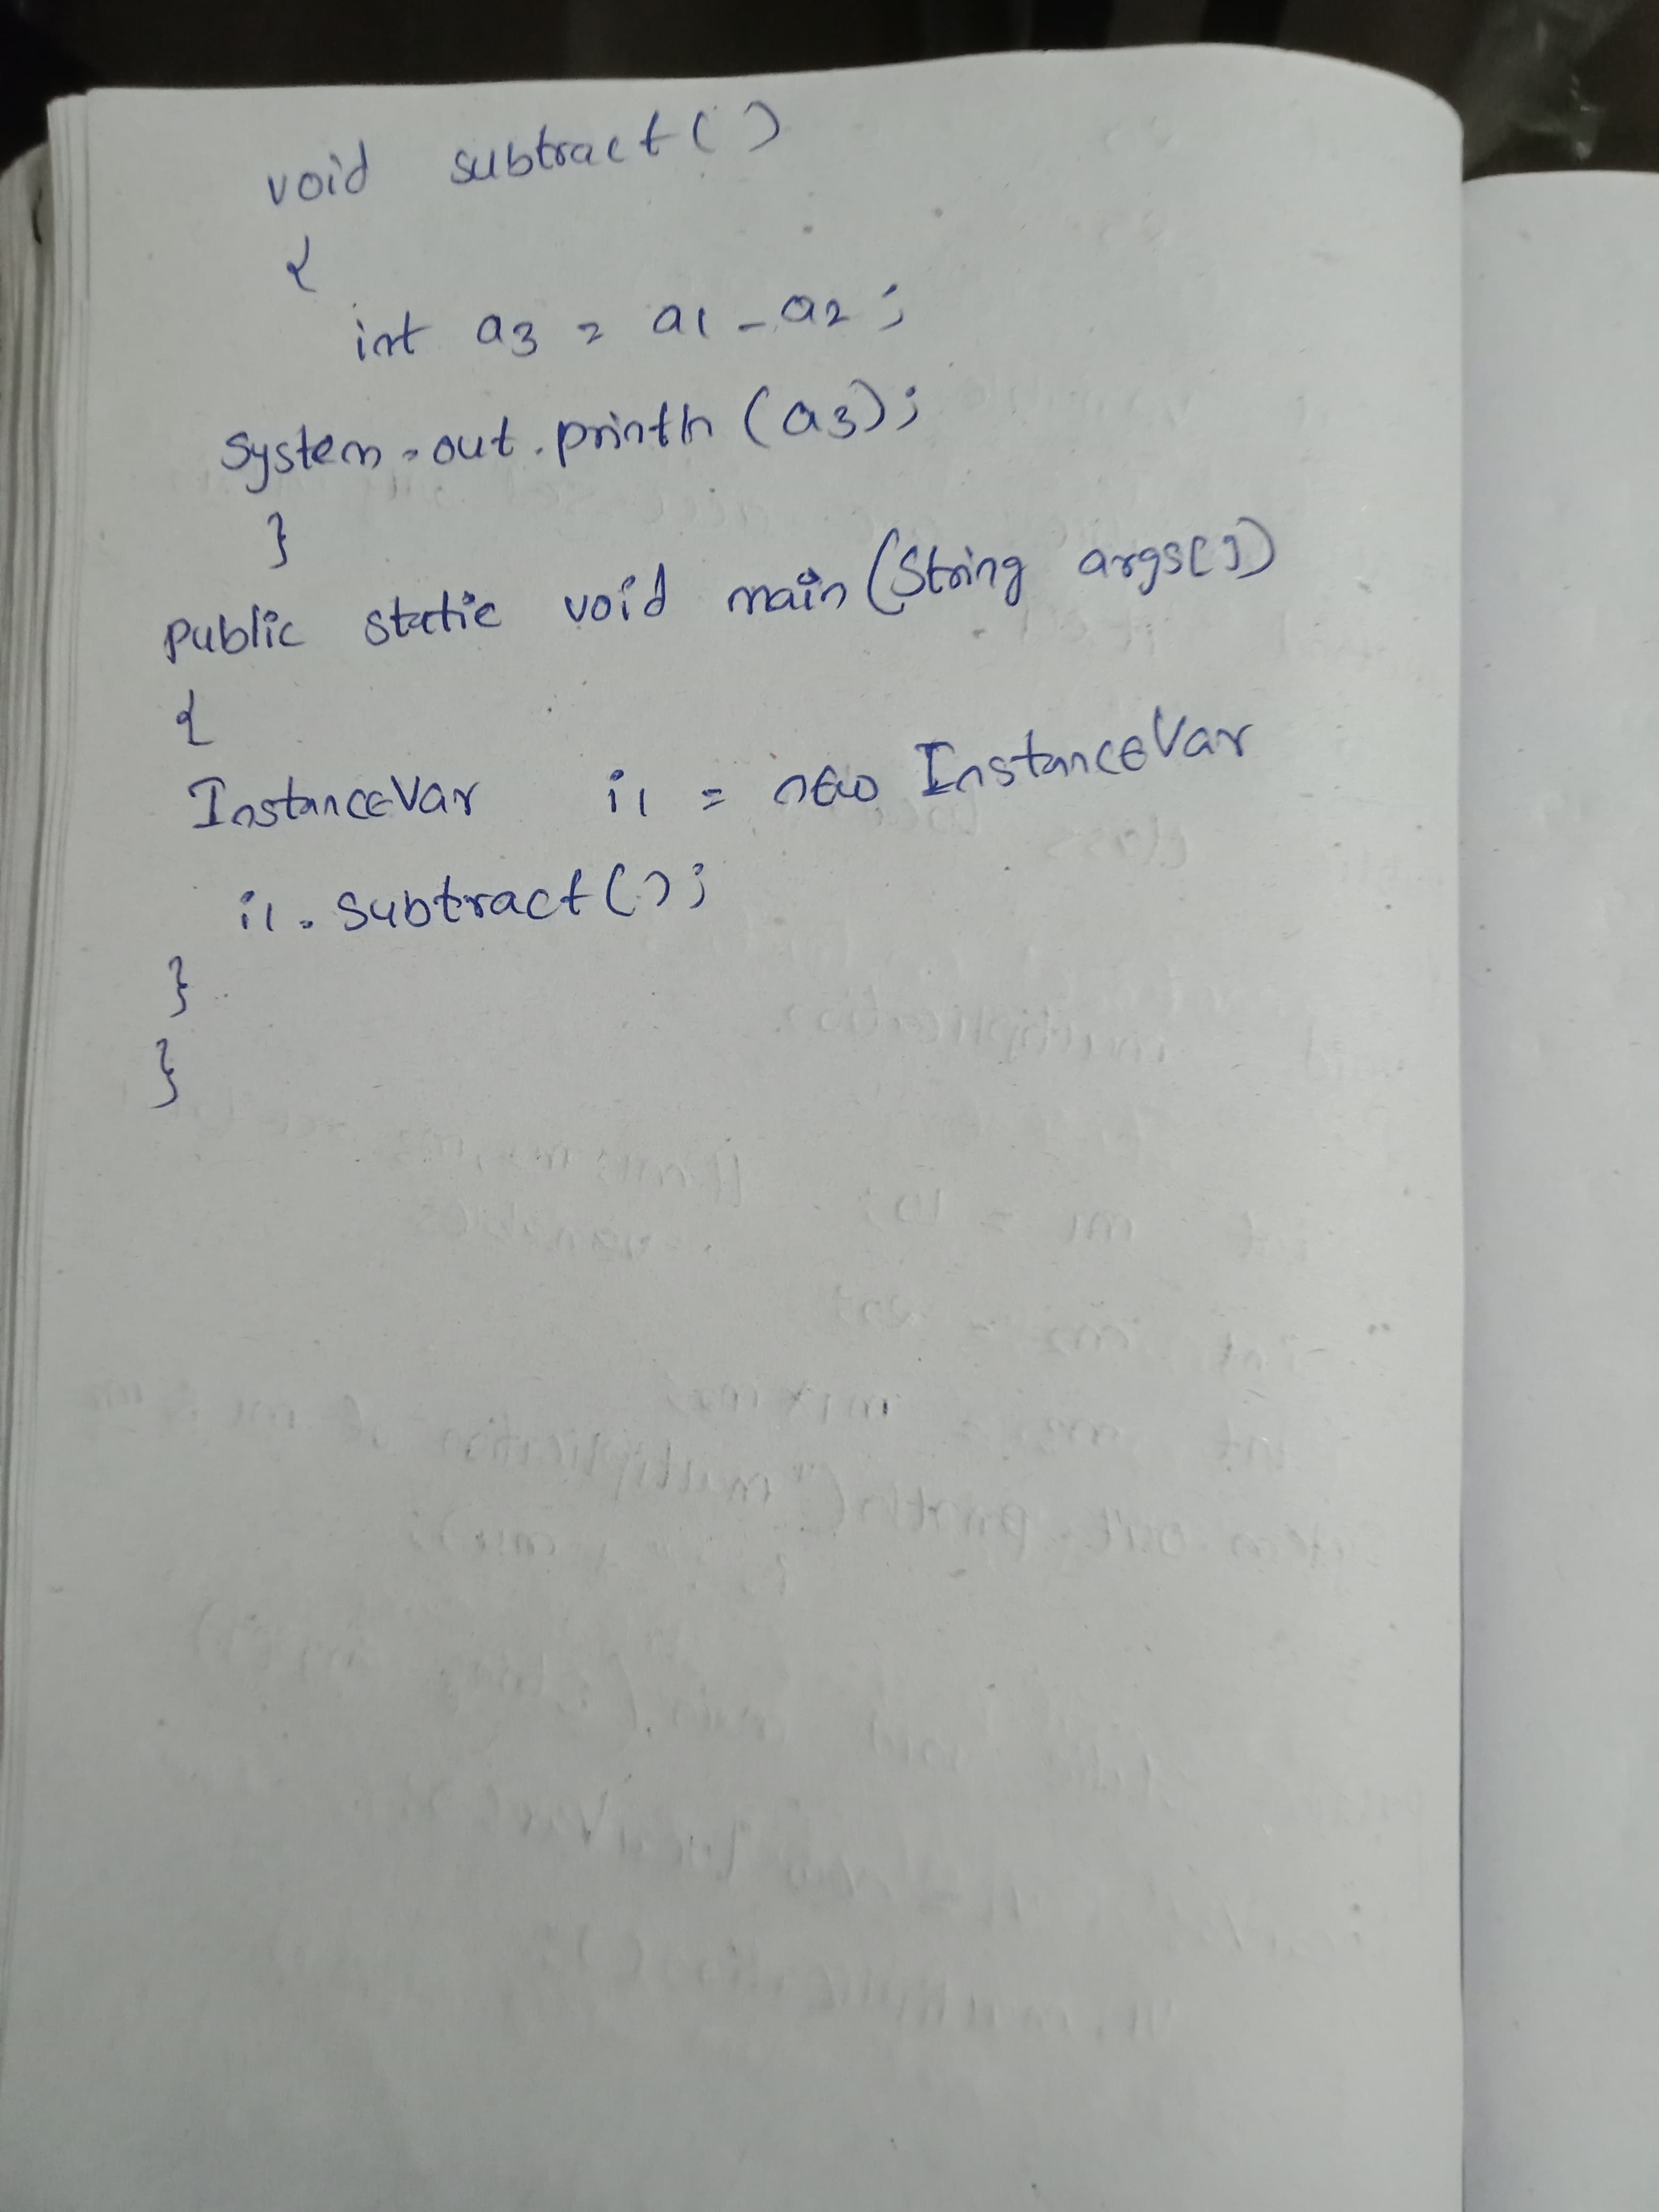 void subtract()
{
int a3 = a1 - a2;
System.out.println(a3);
}
public static void main(String args[])
{
InstanceVar i1 = new InstanceVar
i1.subtract();
}
}